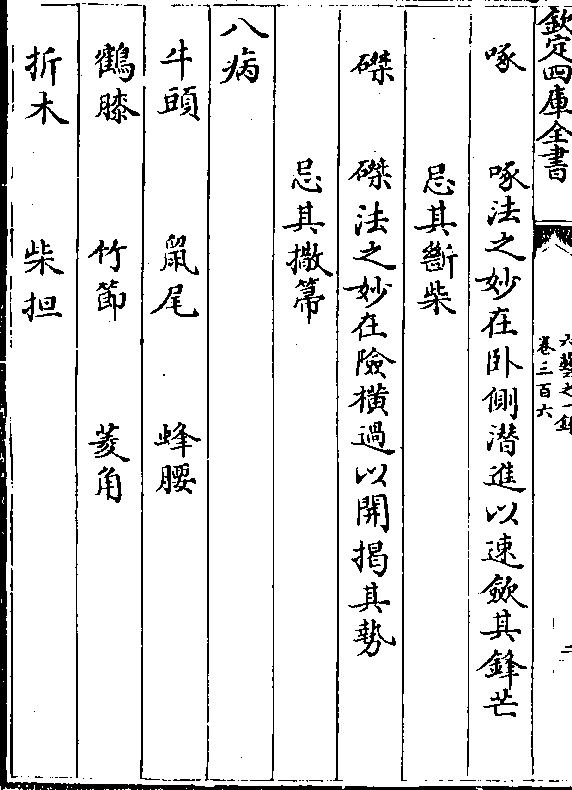 欽定四庫全書
六藝之一錄
卷三百六
二
啄　啄法之妙在卧側潜進以速歛其鋒芒
忌其斷柴
磔　磔法之妙在險橫過以開揭其勢
忌其撒箒
八病
牛頭　鼠尾　蜂腰
鶴膝　竹節　菱角
折木　柴担